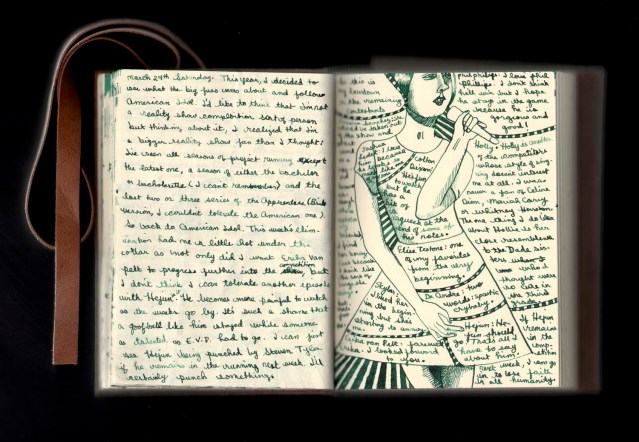 March 24th Saturday. This year, I decided to
see what the big fuss was about and follow
American Idol. I'd like to think that I'm not
a reality show compulsion sort of person
but thinking about it, I realized that I'm
a bigger reality show fan than I thought!
I've seen all seasons of project runway except
the latest one, a season of either the bachelor
or bachelorette (I can't remember) and the
last two or three series of the Apprentice (
version, I couldn't tolerate the American one).
So back to American Idol. This week's elim-
ination had me a little hot under the
collar as not only did I want Erika Van
pelt to progress further into the competition, but
I don't think I can tolerate another episode
with "Hejun". He becomes more painful to watch
as the weeks go by. It's such a shame that
a goofball like him stayed while someone
as talented as E.V.P. had to go. I can just
see Hejun being punched by Steven Tyler
if he remains in the running next week. I'll
certainly punch something.
so this is
my rundown
on the remaining
contestants
Joshua
Ledet: I
because
cotton
Heejun
but he
has a
bit of
a
squeak at the
end of some of
his notes.
Elise Testone: one
of my favorites
from the very
beginning.
De Andre: two
words: spastic
crybaby.
Skylar:
I liked her
in the begin-
ning but she's
starting to annoy
me.
Erika van Pelt: farewell
I looked forward
to you.
Phil philips: I love phil
phillips. I don't think
he'll win but I hope
he stays in the game
because he is
gorgeous and
good!
Holly: Holly is another
of the competitors
whose style of sing-
ing doesn't interest
me at all. I was
never a fan of Celine
Dion, Mariah Carey
or Whitney Houston.
The one thing I do like
about Hollie is her
close resemblance
to the Dale Sis-
ters
which I
thought were
so cute in
the third
grade.
Hejun: He
should
go. That's all I
have to say
about him.
If Hejun
remains
in the
comp-
etition
next week, I may go
in to lose faith
in all humanity.